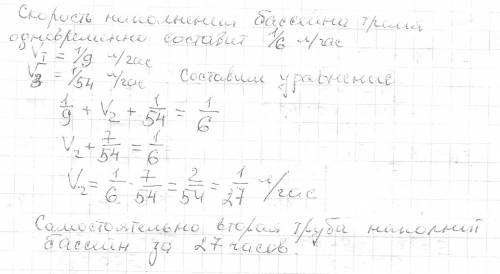 Скорость наполнения бассейна тремя
одновременно составит 1/6 л/час
V1 = 1/9 л/час
V3 = 1/54 л/час. Составим уравнение
1/9 + V2 + 1/54 = 1/6
V2 + 7/54 = 1/6
V2 = 1/6 - 7/54 = 2/54 = 1/27 л/час
Самостоятельно вторая труба наполнит
бассейн за 27 часов.